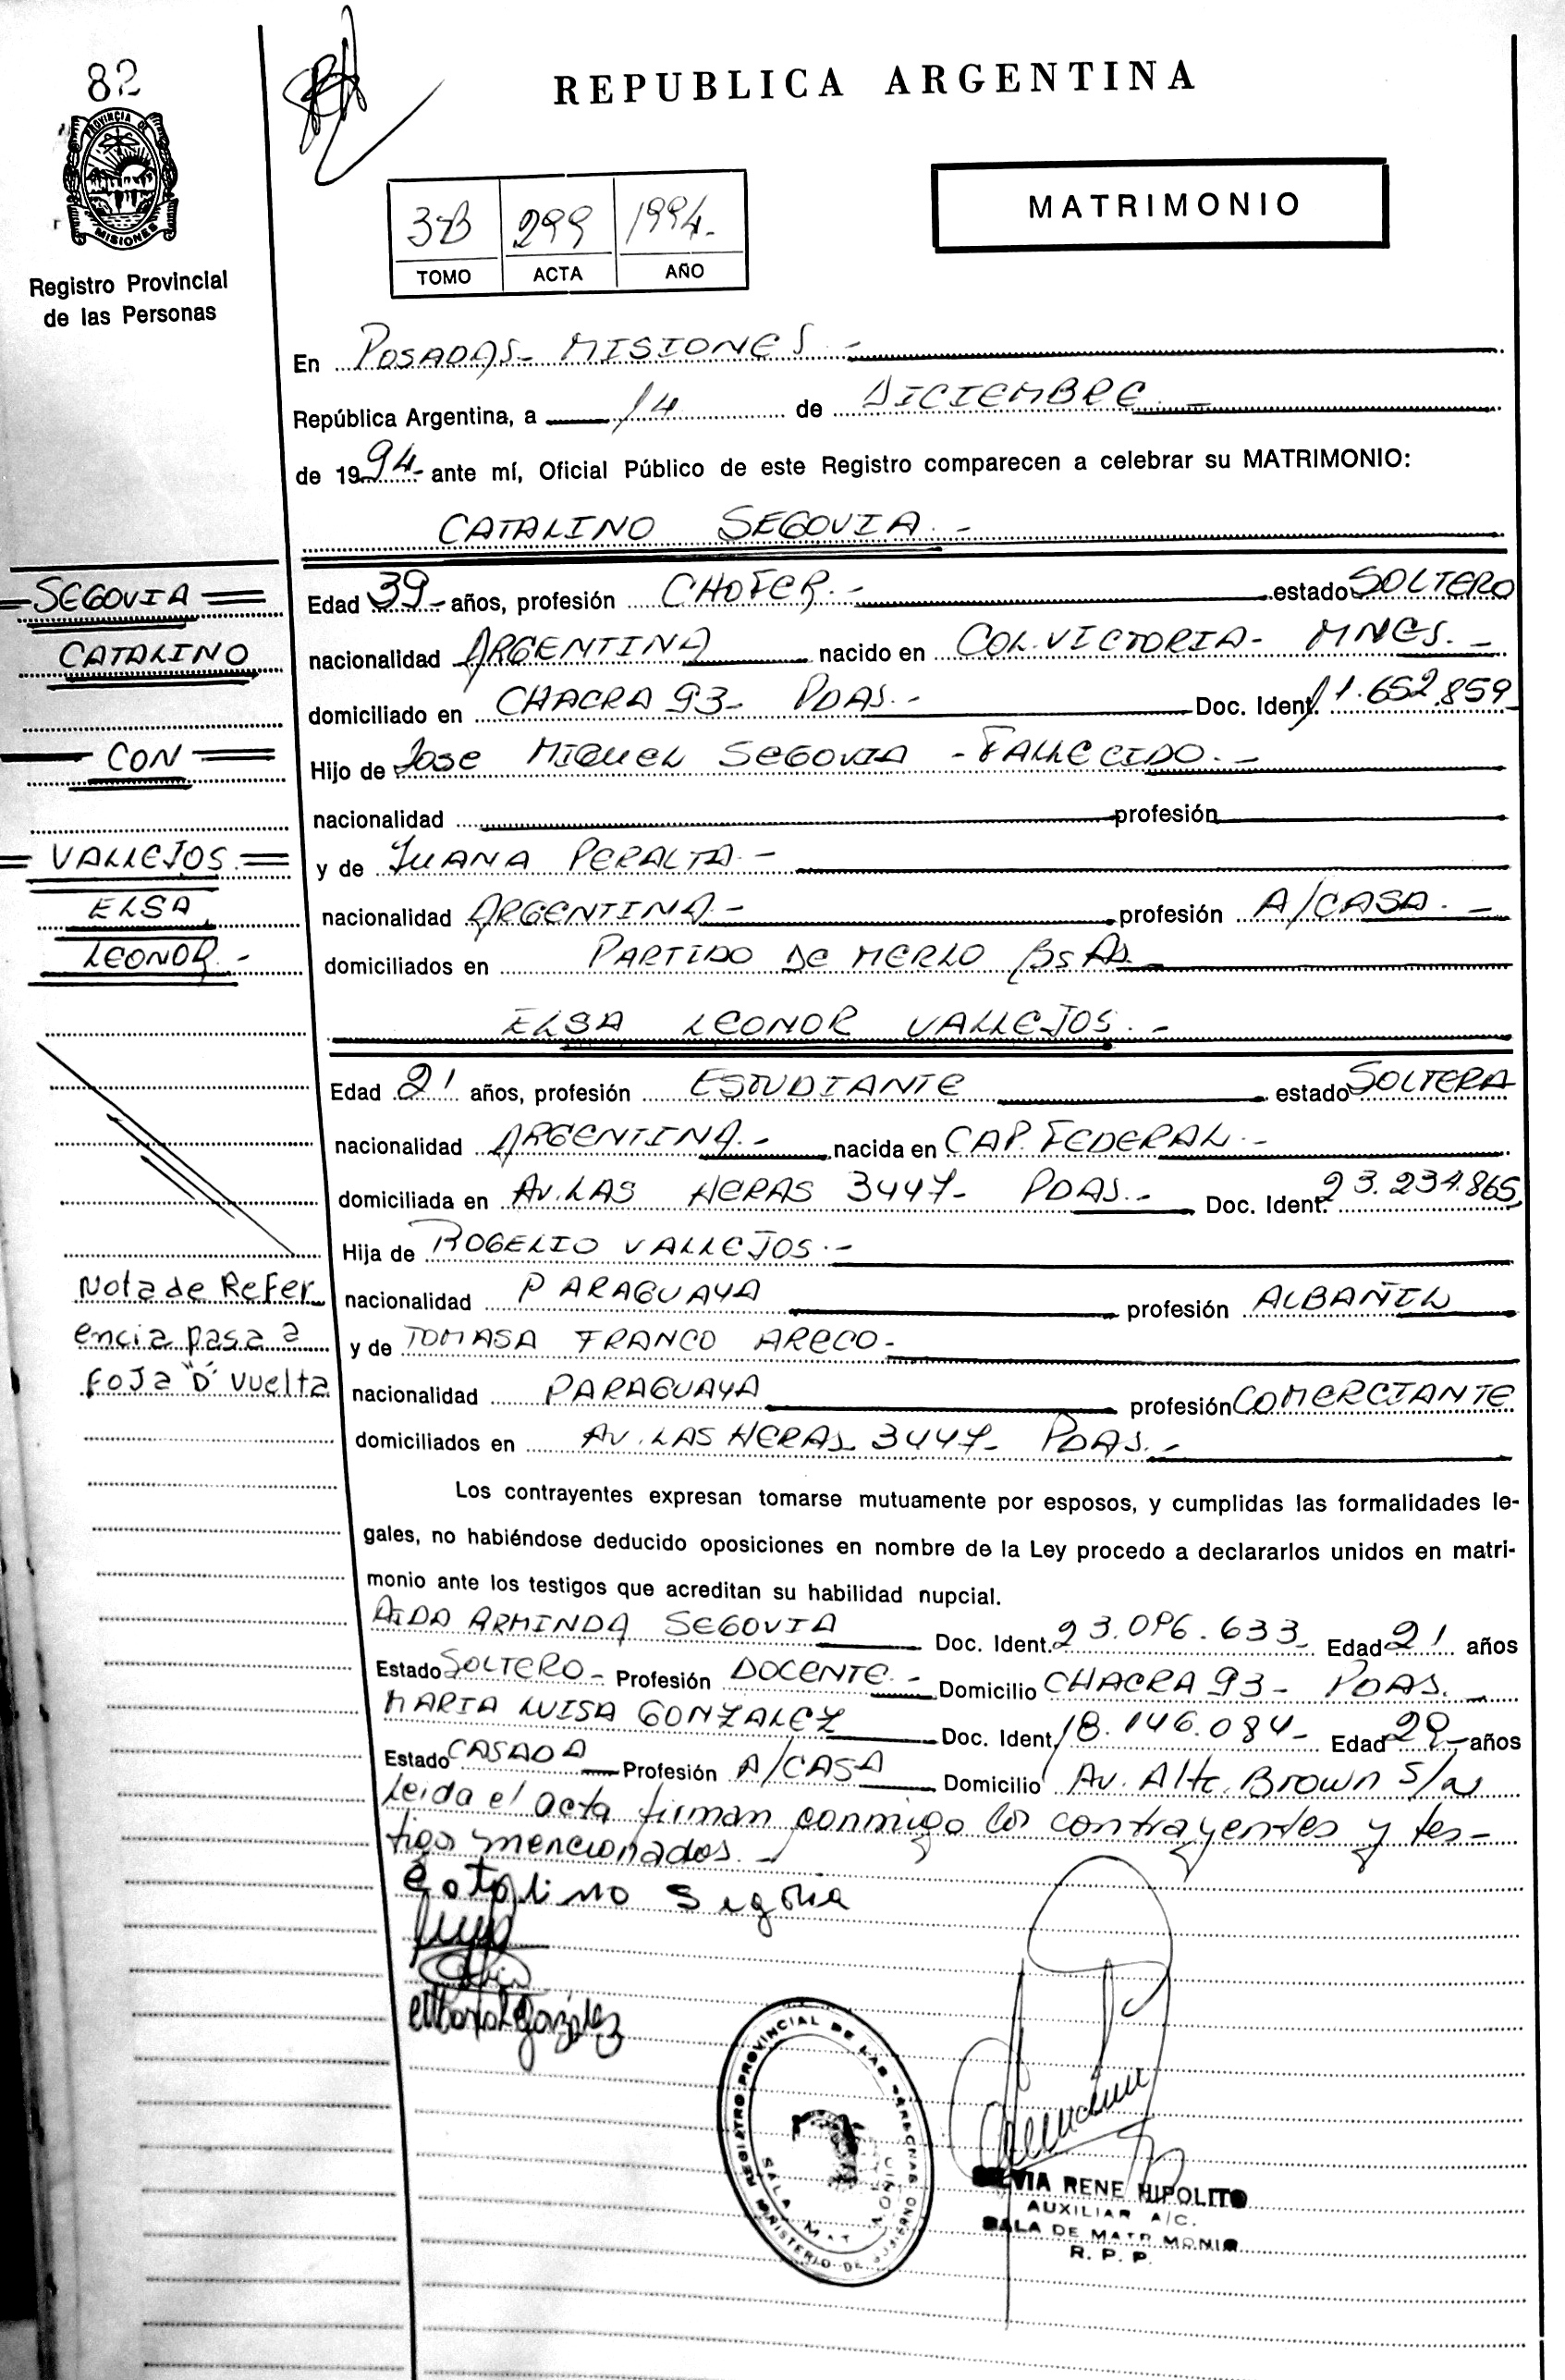 82
REPUBLICA ARGENTINA
PROVINCIA DE
MISIONES
Registro Provincial
de las Personas
3-B 299 1994.-
TOMO ACTA AÑO
MATRIMONIO
En POSADAS- MISIONES.-
República Argentina, a 14 de DICIEMBRE.-
de 1994.- ante mí, Oficial Público de este Registro comparecen a celebrar su MATRIMONIO:
CATALINO SEGOVIA.-
SEGOVIA
CATALINO
CON
VALLEJOS
ELSA
LEONOR.-
Edad 39- años, profesión CHOFER.- estado SOLTERO
nacionalidad ARGENTINA nacido en COL.VICTORIA- MNES.-
domiciliado en CHACRA 93- PDAS.- Doc. Ident. 11.652.859
Hijo de JOSE MIGUEL SEGOVIA - FALLECIDO.-
nacionalidad profesión
y de JUANA PERALTA.-
nacionalidad ARGENTINA.- profesión A/CASA.-
domiciliados en PARTIDO DE MERLO BsAs.
ELSA LEONOR VALLEJOS.-
Edad 21 años, profesión ESTUDIANTE estado SOLTERA
nacionalidad ARGENTINA.- nacida en CAP. FEDERAL.-
domiciliada en AV. LAS HERAS 3447- PDAS.- Doc. Ident. 23.234.865
Hija de ROGELIO VALLEJOS.-
nacionalidad PARAGUAYA profesión ALBAÑIL
y de TOMASA FRANCO ARECO-
nacionalidad PARAGUAYA profesión COMERCIANTE
domiciliados en AV. LAS HERAS 3447- PDAS.-
Nota de Refer
encia pasa a
foja "D" vuelta
Los contrayentes expresan tomarse mutuamente por esposos, y cumplidas las formalidades le-
gales, no habiéndose deducido oposiciones en nombre de la Ley procedo a declararlos unidos en matri-
monio ante los testigos que acreditan su habilidad nupcial.
AIDA ARMINDA SEGOVIA Doc. Ident. 23.096.633- Edad 21 años
Estado SOLTERO- Profesión DOCENTE.- Domicilio CHACRA 93- PDAS.
MARIA LUISA GONZALEZ Doc. Ident. 18.146.084- Edad 29- años
Estado CASADA Profesión A/CASA Domicilio Av. Alte. Brown S/N
Leida el acta firman conmigo los contrayentes y tes-
tigos mencionados.-
Catalino Segovia
REGISTRO PROVINCIAL DE LAS PERSONAS
MINISTERIO DE GOBIERNO
SALA MAT
SILVIA RENE HIPOLITO
AUXILIAR A/C.
SALA DE MATRIMONIO
R. P. P.